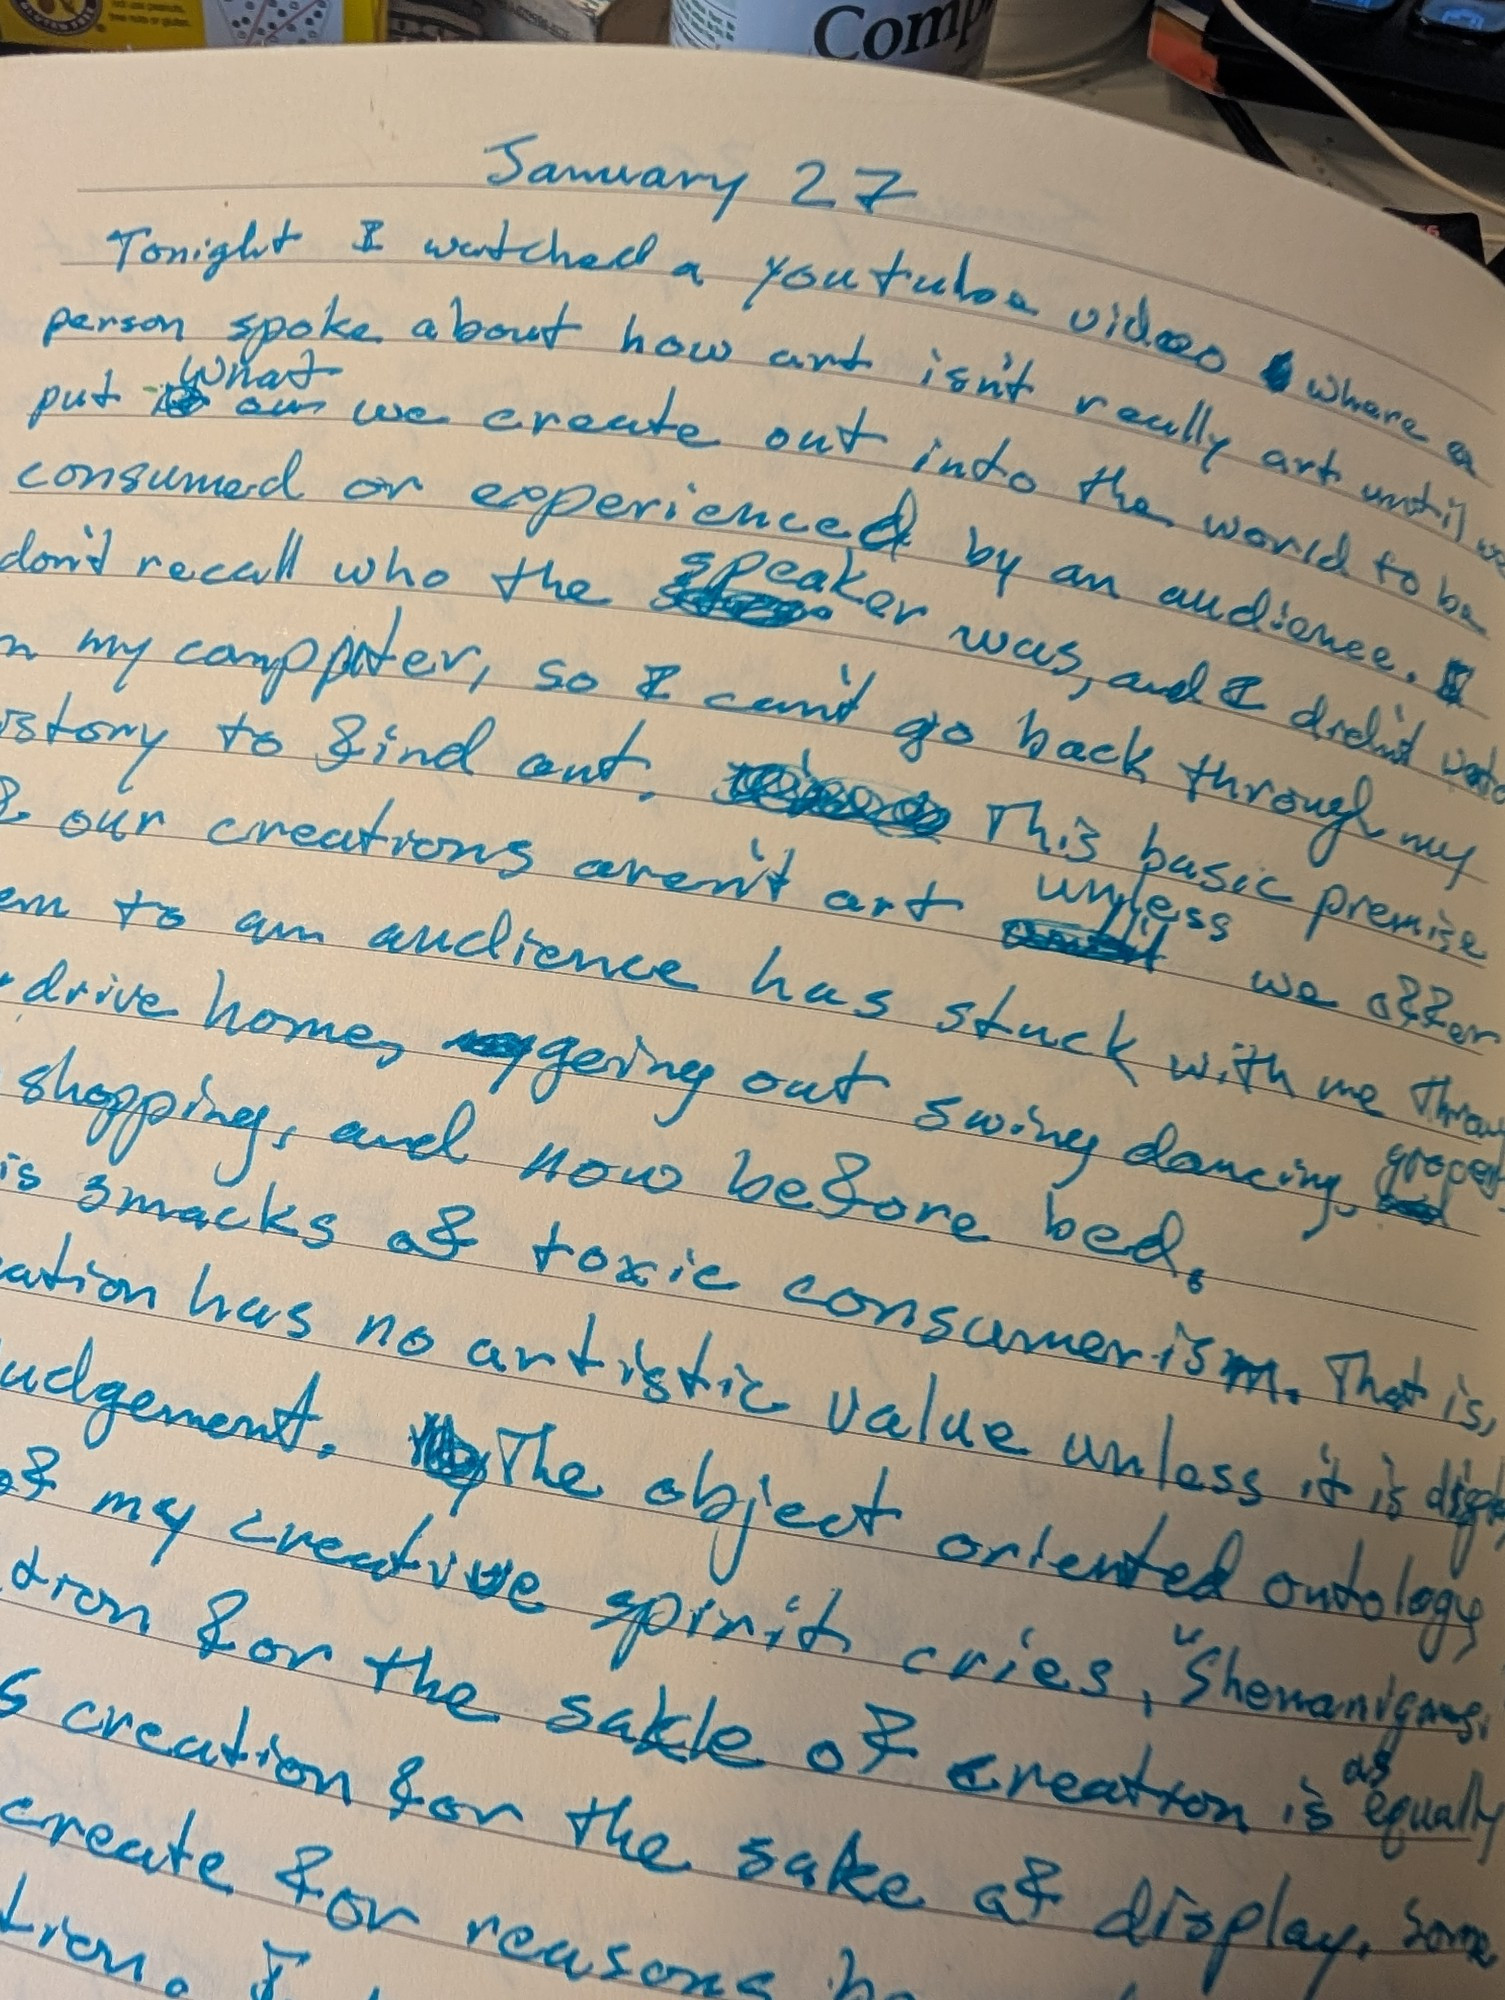 Comp
January 27
Tonight I watched a youtube video where a
person spoke about how art isn't really art until we
put what we create out into the world to be
consumed or experienced by an audience. I
don't recall who the speaker was, and I didn't
my computer, so I can't go back through my
to find out. This basic premise
our creations aren't art unless we offer
to an audience has stuck with me
drive home, going out swing dancing,
shopping, and now before bed.
smacks of toxic consumerism. That is,
has no artistic value unless it is
The object oriented ontology
of my creative spirit cries, "Shenanigans.
for the sake of creation is as equally
creation for the sake of display. Some
create for reasons
I